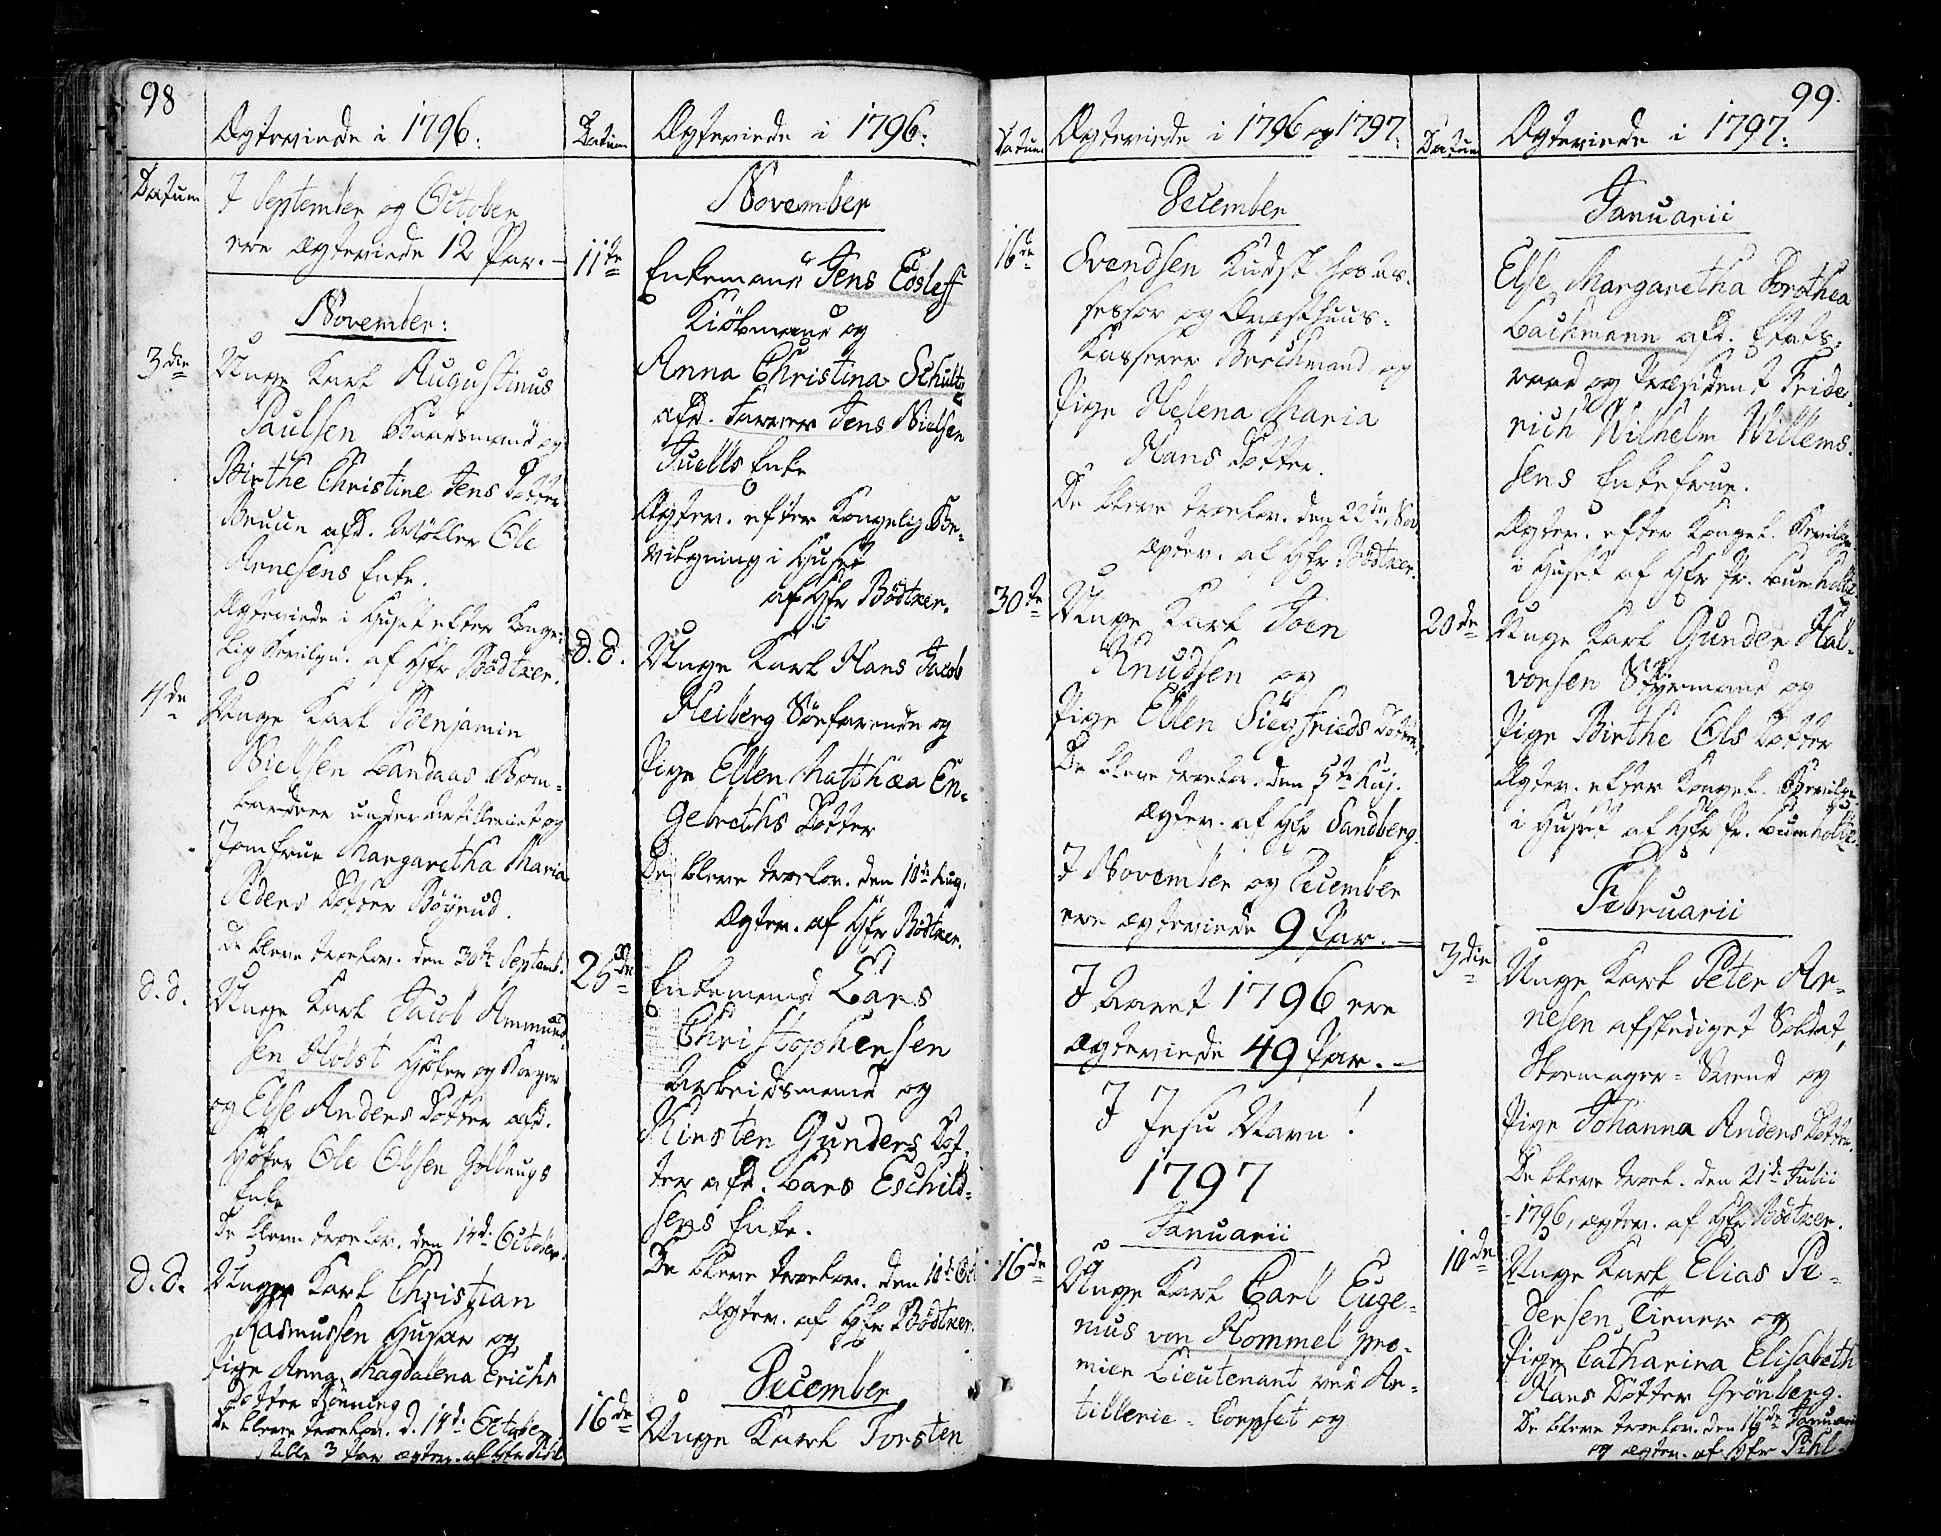 98
Ægteviede i 1796.
Datum
I September og October
ere ægteviede 12 Par.
November:
3die
Unge Karl Augustinus
Paulsen Baadsmand og
Birthe Christine Jens Dotter
Bruun afd. Møller Ole
Arnesens Enke.
Ægteviede i Huset efter Konge-
lig Bevilgn. af Hr Bødtker.
4de
Unge Karl Benjamin
Nielsen Landaas Bom-
barderer under Artilleriet og
Jomfrue Margaretha Maria
Peders Dotter Böyrud.
De bleve trolov. den 30te Septemb.
d. d.
Unge Karl Jacob Ammund-
sen Holst Høker og Borger
og Else Anders Dotter afd.
Høker Ole Olsen
Enke
De bleve trolov. den 14d. October.
d. d.
Unge Karl Christian
Rasmussen Husar og
Pige Anna Magdalena Erichs
Dotter Rönning
De bleve trolov. d. 14d. October
alle 3 Par ægtev. af Hr Pihl
Datum
Ægteviede i 1796.
November
11te
Enkemand Jens Edsleff
Kiöbmand og
Anna Christina Schultz
afd. Farver Jens Nielsen
Juells Enke
Ægtev. efter Kongelig Be-
vilgning i Huset
af Hr Bødtker.
d. d.
Unge Karl Hans Jacob
Heiberg Søefarende og
Pige Ellen Matthæa En-
gebreths Dotter
De bleve trolov. den 10de Aug.
Ægtev. af Hr Bødtker.
25de
Enkemand Lars
Christophersen
Arbeidsmand og
Kirsten Gunders Dot-
ter afd. Lars Eschild-
sens Enke.
De bleve trolov. den 10d Oct
Ægtev. af Hr Bødtker.
December
16de
Unge Karl Torsten
Datum
Ægteviede i 1796 og 1797.
December
16de
Evendsen Kudsk hos As-
sessor og
Kasserer Berchmand og
Pige Helena Maria
Hans Dotter.
De bleve trolov. den 22de Nov
Ægtev. af Hr Bødtker.
30te
Unge Karl Joen
Knudsen og
Pige Ellen Siegfrieds Dotter
De bleve trolov. den 5te Huj.
Ægtev. af Hr Sandberg.
I November og December
ere ægteviede 9 Par.
I Aaret 1796 ere
ægteviede 49 Par.
I Jesu Navn!
1797
Januarii
16de
Unge Karl Carl Euge-
nius von Hommel pre-
mier Lieutenant ved Ar-
tillerie-Corpset og
99.
Datum
Ægteviede i 1797.
Januarii
Else Margaretha Dorothea
Bachmann afd. Etats-
raad og Præsident Fride-
rich Wilhelm Willem-
sens Enkefrue.
Ægtev. efter Kongel. Bevilgn
i Huset af Hr Pr. Lumholtz
20de
Unge Karl Gunder Hal-
vorsen Styrmand og
Pige Birthe Ols Dotter
Ægtev. efter Kongel. Bevilgn
i Huset af Hr Pr. Lumholtz.
Februarii
3die
Unge Karl Peter Ar-
nesen afskediget Soldat,
Skoemager-Svend og
Pige Johanna Anders Dotter.
De bleve trol. den 21d Julii
1796, ægtev. af Hr Bødtker.
10de
Unge Karl Elias Pe-
dersen Tiener og
Pige Catharina Elisabeth
Hans Dötter Grönberg.
De bleve trolov. den 16de Januarii
og ægtev. af Hr Pihl.